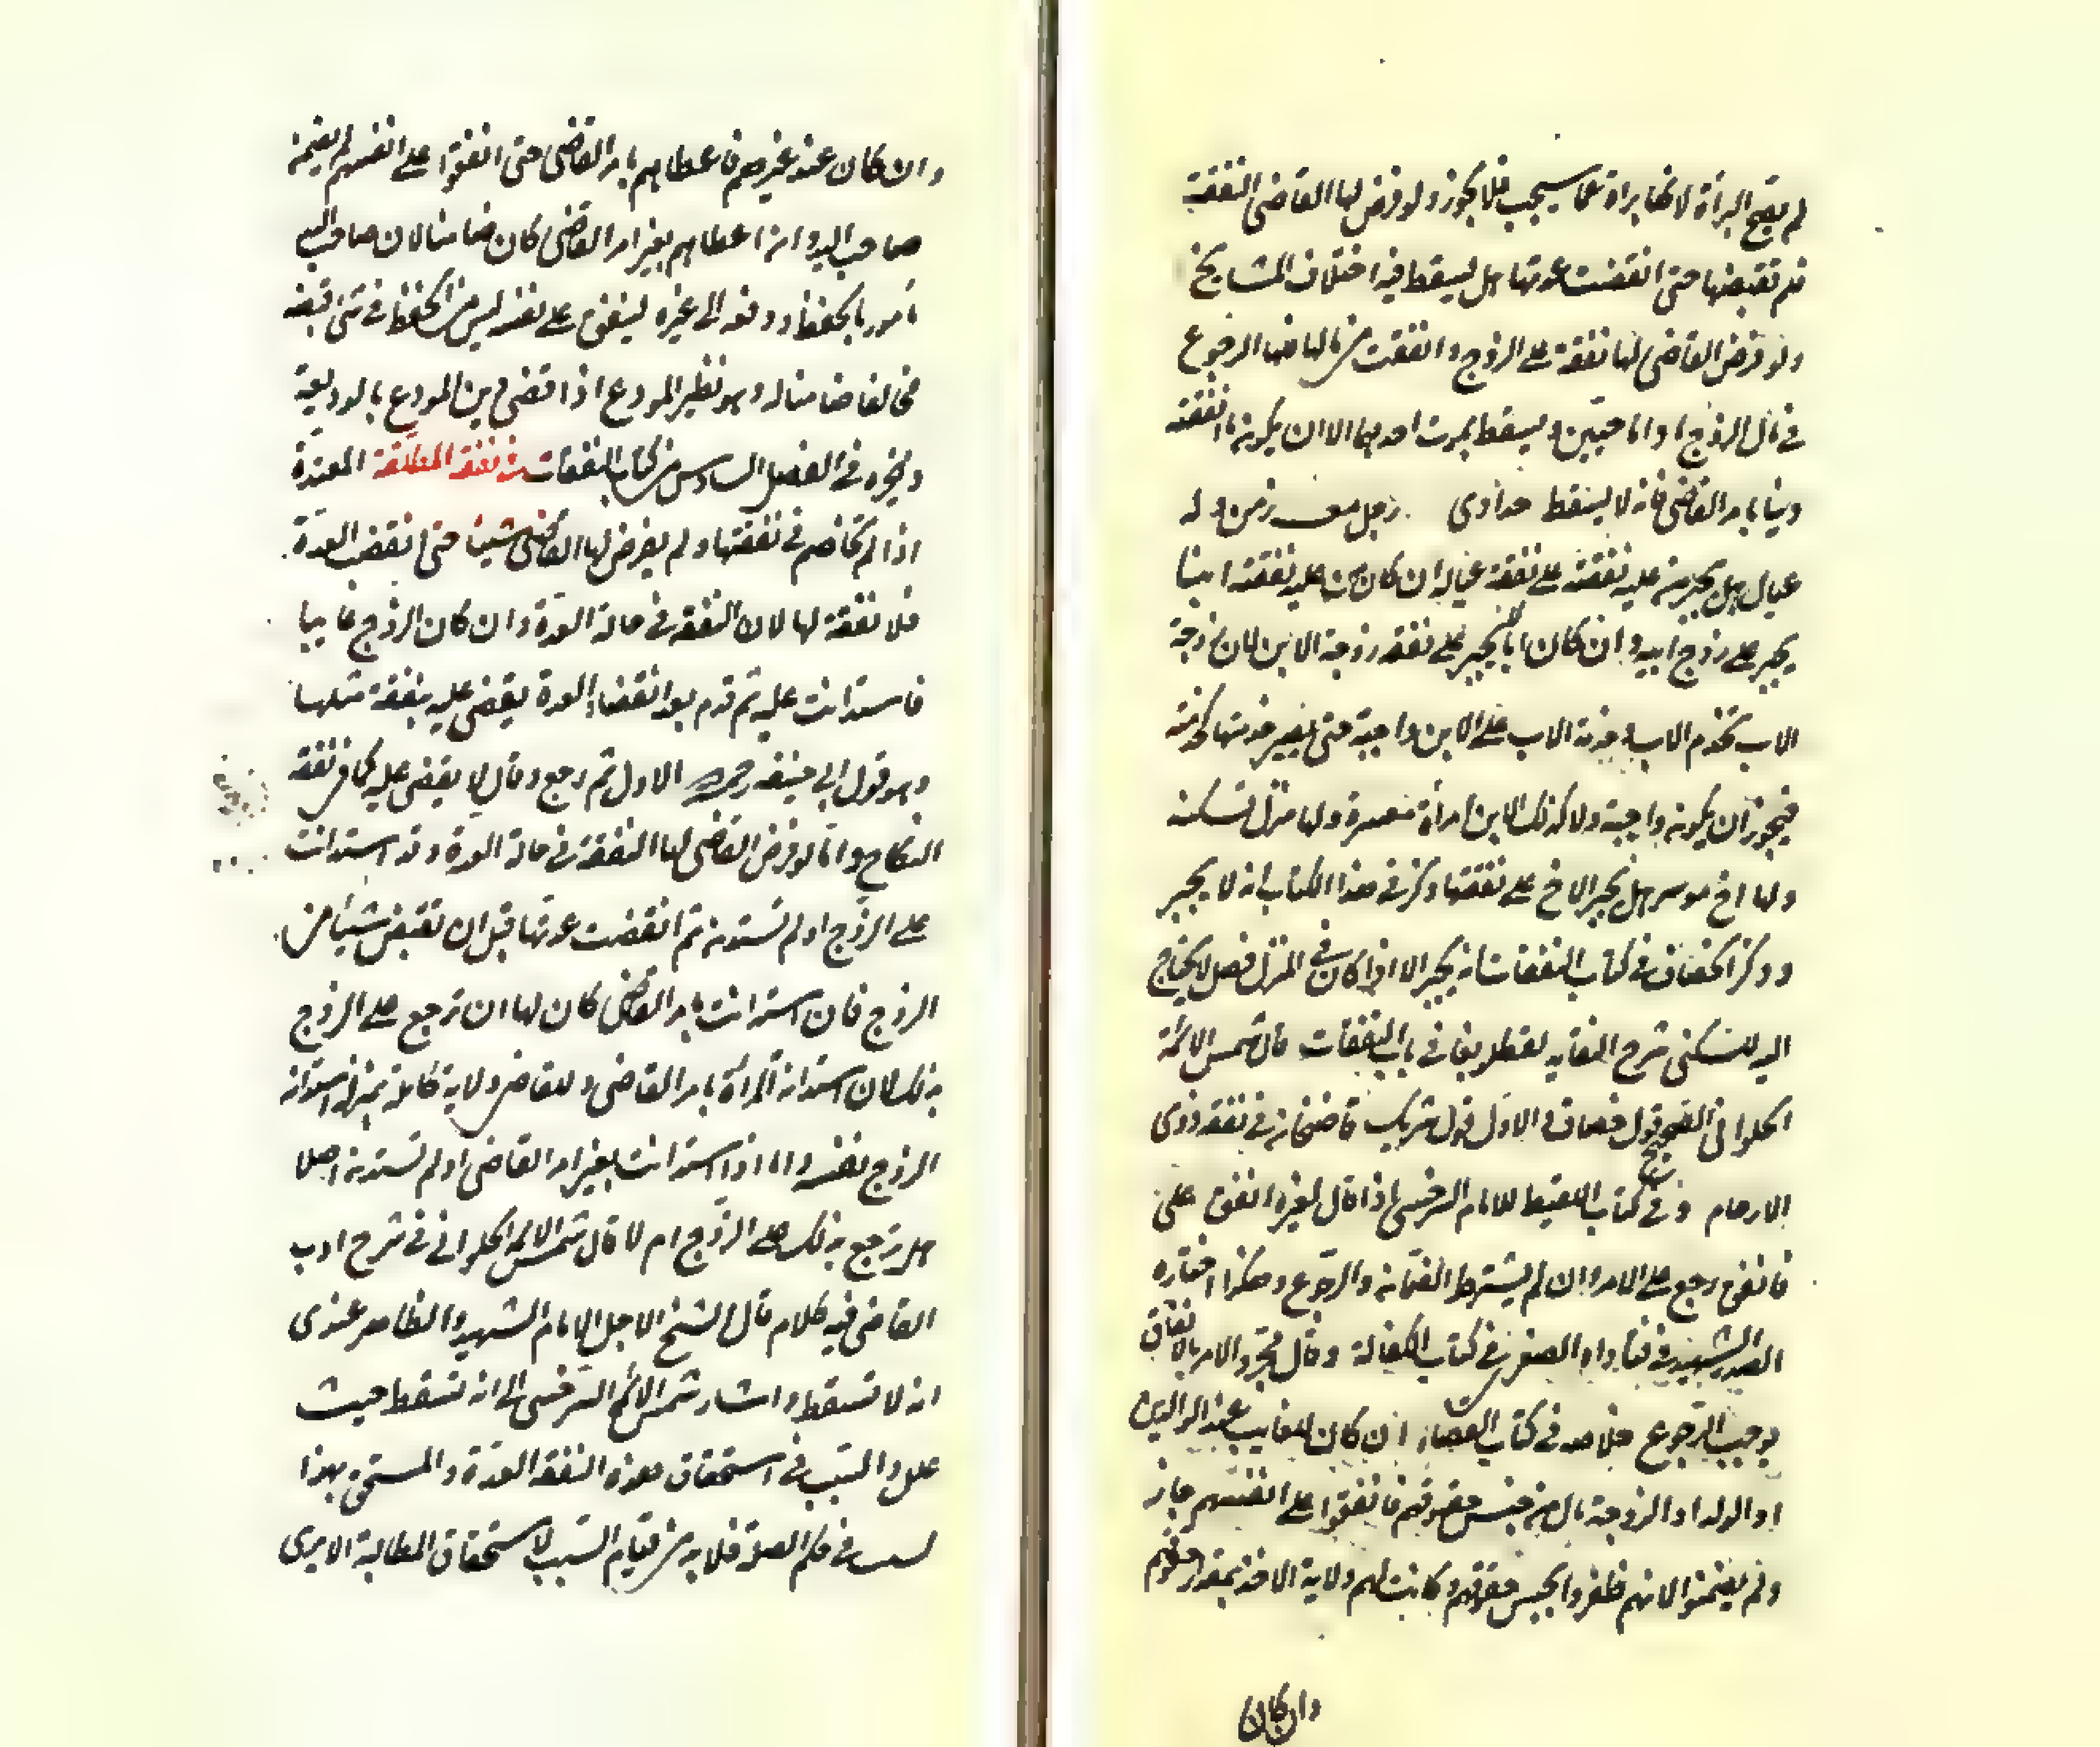 لم يصح البراة لانها براة عما سيجب فلا يجوز ولو فرض لها القاضى النفقة
فلم تقبضها حتى انقضت عدتها هل يسقط فيه اختلاف المشايخ
ولو فرض القاضى لها نفقة على الزوج وانفقت من مالها فلها الرجوع
فى مال الزوج ما داما حيين ويسقط بموت احدهما الا ان يكون ما انفقته
دينا بامر القاضى فانه لا يسقط حدادى رجل معسر زمن وله
عيال هل يجبر من عليه نفقته على نفقة عياله ان كان من عليه نفقته ابنا
يجبر على زوج ابيه وان كان ابا لا يجبر على نفقة زوجة الابن لان زوجة
الاب تخدم الاب وخدمة الاب على الابن واجبة حتى يصير خدمتها كخدمته
فيجوز ان يكون واجبة ولا كذلك الابن امرأة معسرة ولها منزل تسكنه
ولها اخ موسر هل يجبر الاخ على نفقتها ذكر فى هذا الكتاب انه لا يجبر
وذكر الخصاف فى كتاب النفقات انه يجبر الا اذا كان فى المنزل فضل لا يحتاج
اليه للسكنى شرح النقايه لقطلوبغا فى باب النفقات قال شمس الائمة
الحلوانى الصحيح قول خصاف والاول قول شريك قاضيخان فى نفقة ذوى
الارحام وفى كتاب اللقيط للامام السرخسى اذا قال لغيره انفق على
فانفق رجع على الامر وان لم يشترط الضمان والرجوع وهكذا اختاره
الصدر الشهيد فى فتاواه الصغرى فى كتاب الكفالة وقال مجرد الامر بالانفاق
يوجب الرجوع خلاصه فى كتاب القضاء ان كان للغايب عند الوالدين
او الولد او الزوجة مال من جنس حقوقهم فانفقوا على انفسهم جاز
ولم يضمنوا لانهم ظفروا بجنس حقوقهم وكانت لهم ولاية الاخذ بمقدار حقوقهم
وان كان
وان كان عند غيرهم فاعطاهم بامر القاضى حتى انفقوا على انفسهم لم يضمن
صاحب اليد وان اعطاهم بغير امر القاضى كان ضامنا لان صاحب اليد
مأمور بالحفظ ودفعه الى غيره لينفق على نفسه ليس من الحفظ فى شئ فيضمنه
مخالفا ضامنا له وهو نظير المودع اذا قضى دين المودع بالوديعة
ذخيره فى الفصل السادس من كتاب النفقات من نفقة المطلقة المعتدة
اذا لم تخاصم فى نفقتها ولم يفرض لها القاضى شيئا حتى انقضت العدة
فلا نفقة لها لان النفقة فى حالة العدة وان كان الزوج غايبا
فاستدانت عليه ثم قدم بعد انقضاء العدة يقضى عليه بنفقة مثلها
وهو قول ابى حنيفه رحمه الله الاول ثم رجع وقال لا يقضى عليه كما فى نفقة
النكاح واما لو فرض القاضى لها النفقة فى حالة العدة وقد استدانت
على الزوج او لم تستدنه ثم انقضت عدتها قبل ان تقبض شيئا من
الزوج فان استدانت بامر القاضى كان لها ان ترجع على الزوج
بذلك لان استدانة المرأة بامر القاضى وللقاضى ولاية كاملة بمنزلة استدانة
الزوج بنفسه واما اذا استدانت بغير امر القاضى او لم تستدنه اصلا
هل ترجع بذلك على الزوج ام لا قال شمس الائمه الحلوانى فى شرح ادب
القاضى فيه كلام قال الشيخ الاجل الامام الشهيد والظاهر عندى
انه لا تسقط واشار شمس الائمة السرخسى الى انه تسقط حيث
علل والسبب فى استحقاق هذه النفقة العدة والمستحق بهذا
السبب فى حكم الصلة فلا بد من قيام السبب لاستحقاق المطالبة الا يرى